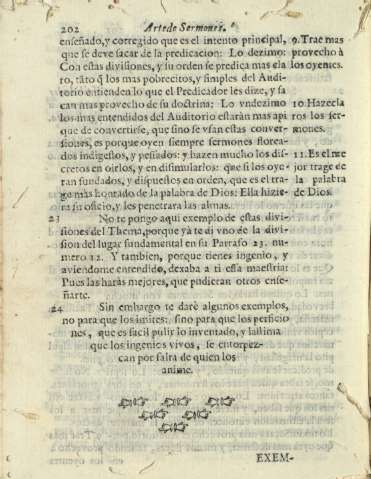 202 Arte de Sermones.
enseñado, y corregido que es el intento principal,
que se deve sacar de la predicacion: Lo dezimo:
Con estas divisiones, y su orden se predica mas cla
ro, tãto q̃ los mas pobrecitos, y simples del Audi-
torio entienden lo que el Predicador les dize, y sa
can mas provecho de su doctrina: Lo vndezimo
los mas entendidos del Auditorio estaràn mas apt
que de convertirse, que sino se vsan estas conver-
siones, es porque oyen siempre sermones florea-
dos indigestos, y pesados: y hazen mucho los dis-
cretos en oirlos, y en disimularlos: que si los oye-
ran fundados, y dispuestos en orden, que es el tra-
ge mas honrado de la palabra de Dios: Ella hizie-
ra su oficio, y les penetrara las almas.
9. Trae mas
provecho à
los oyentes.
10 Haze cla
ros los ser-
mones.
11. Es el me
jor trage de
la palabra
de Dios.
23 No te pongo aqui exemplo de estas divi-
siones del Thema, porque yà te di vno de la divi-
sion del lugar fundamental en su Parrafo 23. nu-
mero 12. Y tambien, porque tienes ingenio, y
aviendome entendido, dexaba a ti esta maestria:
Pues las haràs mejores, que pudieran otros ense-
ñarte.
24 Sin embargo te darè algunos exemplos,
no para que los imites: sino para que los perficio
nes, que es facil pulir lo inventado, y lastima
que los ingenios vivos, se entorpez-
can por falta de quien los
anime.
EXEM-